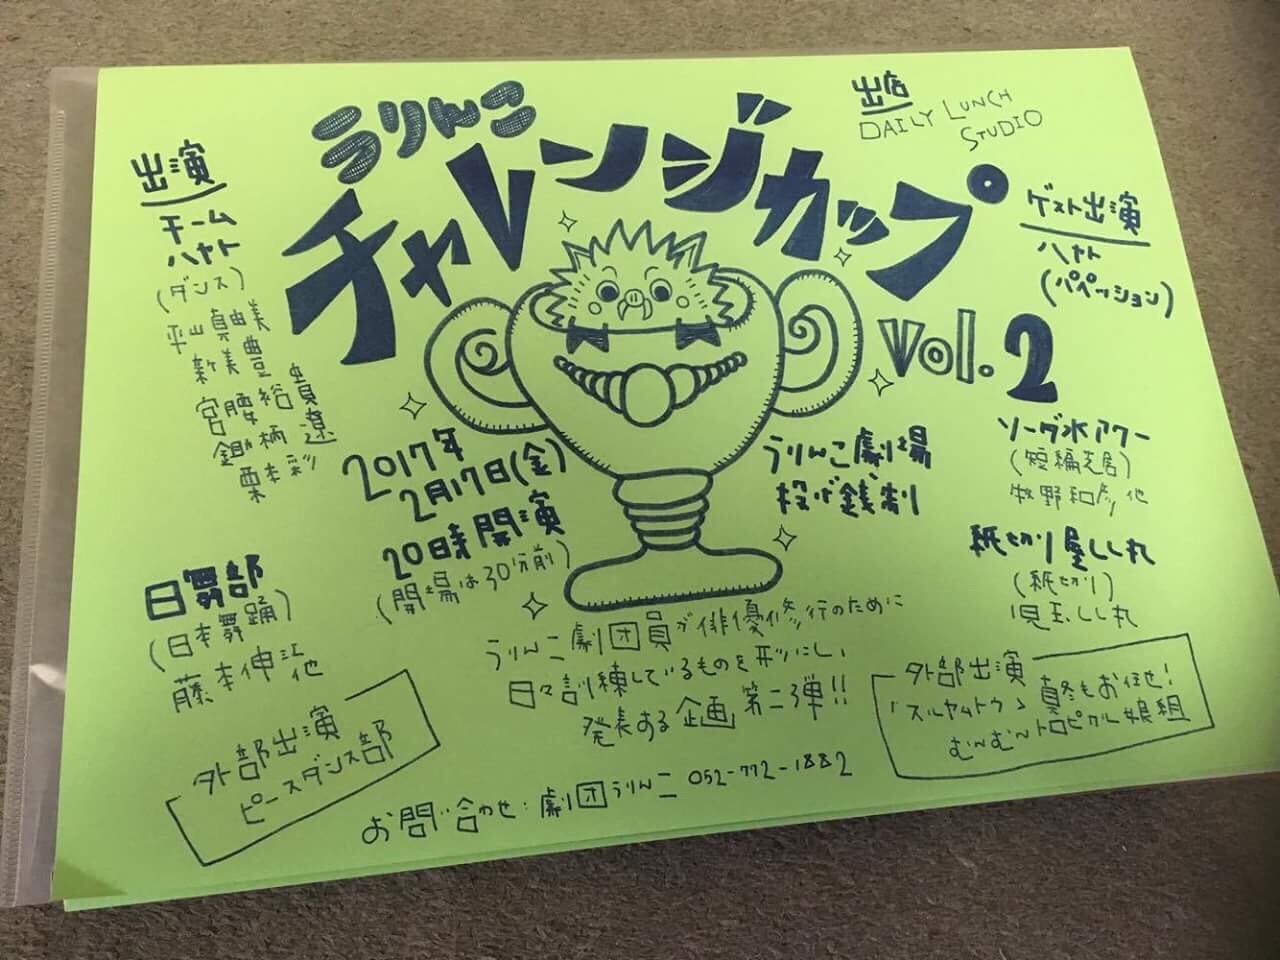 うりんこ
チャレンジカップ
vol.2
出店
DAILY LUNCH
STUDIO
出演
チーム
ハヤト
(ダンス)
平山真由美
新美豊
宮腰裕貴
鋤柄遼
栗本彩
ゲスト出演
ハヤト
(パペッション)
2017年
2月17日(金)
20時開演
(開場は30分前)
うりんこ劇場
投げ銭制
ソーダ水アワー
(短編芝居)
牧野和彦/他
紙切り屋ししれ
(紙切り)
児玉ししれ
日舞部
(日本舞踊)
藤本伸江他
うりんこ劇団員が俳優修行のために
日々訓練しているものを形にし、
発表する企画 第二弾!!
外部出演
ピースダンス部
外部出演
「スルヤムトウ」真冬もお任せ!
むんむんトロピカル娘組
お問い合わせ:劇団うりんこ 052-772-1882